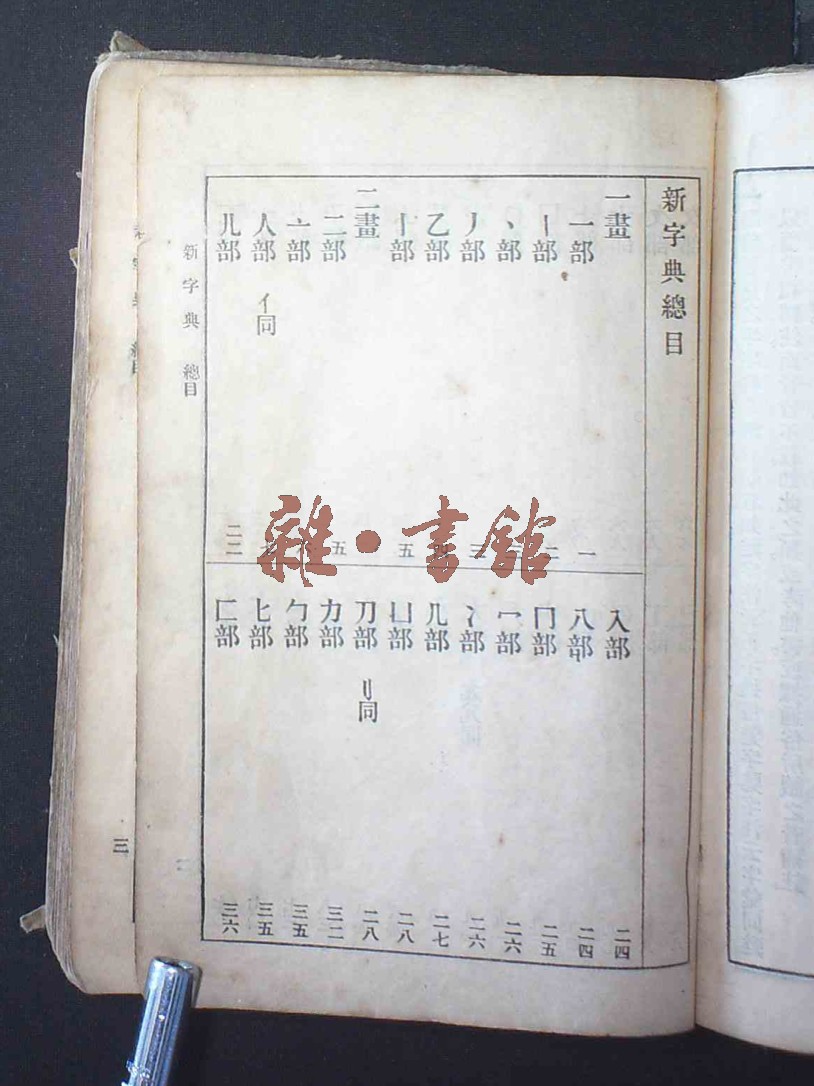 新字典總目
一畫
一部 一
丨部 二
丶部
丿部 三
乙部 四
亅部 五
二畫
二部 五
亠部
人部 亻同
儿部 二二
入部 二四
八部 二四
冂部 二五
冖部 二六
冫部 二六
几部 二七
凵部 二八
刀部 刂同 二八
力部 三二
勹部 三五
匕部 三五
匚部 三六
新字典 總目
三
雜·書館